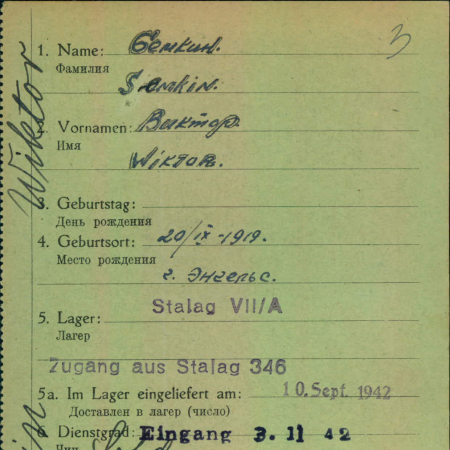 3
1. Name: Семкин.
Фамилия
Semkin.
2. Vornamen: Виктор.
Имя
Wiktor.
Wiktor
3. Geburtstag:
День рождения
20/IX-1919.
4. Geburtsort:
Место рождения
г. Энгельс.
Stalag VII/A
5. Lager:
Лагер
Zugang aus Stalag 346
5a. Im Lager eingeliefert am: 10. Sept. 1942
Доставлен в лагер (число)
6. Dienstgrad: Eingang 3. 11 42
Чин